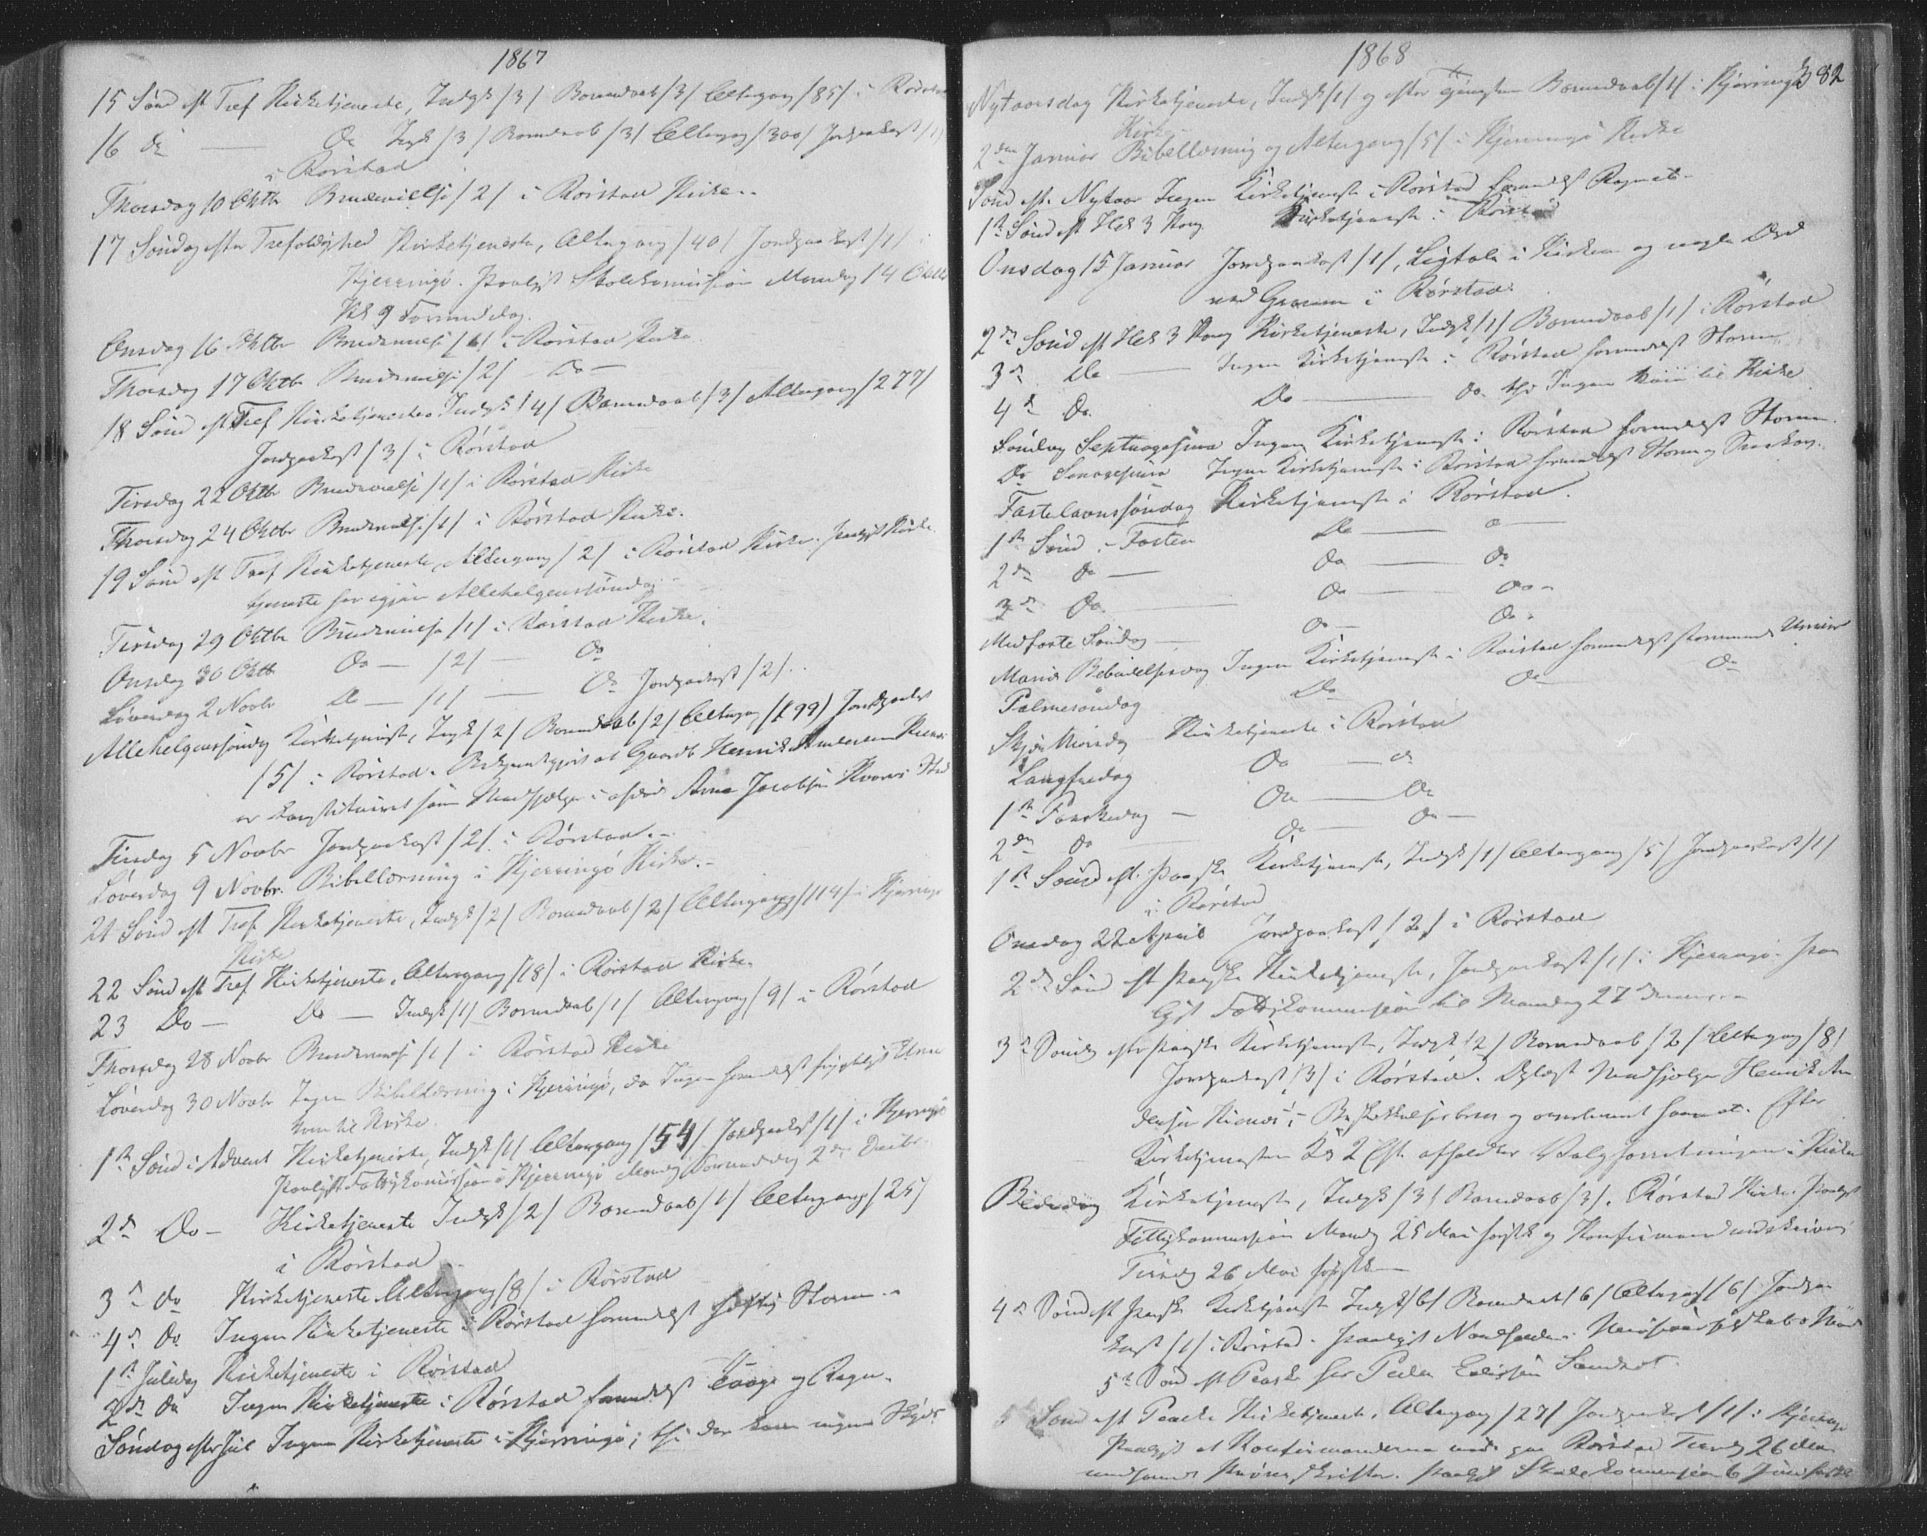 1867
15 Sønd eft Tref Kirketjeneste, Indgk /3/ Barnedaab /3/ Altergang /85/ i Rørstad
16 do — Do Indgk /3/ Barnedaab /3/ Altergang /300/ Jordpaakast
i Rørstad
Thorsdag 10 Oktbr Brudevielse /2/ i Rørstad Kirke.
17 Søndag efter Trefoldighed Kirketjeneste, Altergang /40/ Jordpaakast /1/ i
Kjerringø. Paalyst Skolekommission Mandag 14 Oktbr
Kl. 9 Formiddag.
Onsdag 16 Oktbr Brudevielse /1/ i Rørstad Kirke.
Thorsdag 17 Oktbr Brudevielse /2/ — Do —
18 Sønd eft Tref Kirketjeneste Indgk /4/ Barnedaab /3/ Altergang /277/
Jordpaakast /3/ i Rørstad
Tirsdag 22 Oktbr Brudevielse /1/ i Rørstad Kirke
Thorsdag 24 Oktbr Brudevielse /1/ i Rørstad Kirke.
19 Sønd eft Tref Kirketjeneste, Altergang /2/ i Rørstad Kirke. Paalyst Kirke
tjeneste her igjen Allehelgenssøndag.
Tirsdag 29 Oktbr Brudevielse /1/ i Rørstad Kirke.
Onsdag 30 Oktbr Do — /2/ — Do
Løverdag 2 Novbr Do — /1/ — Do Jordpaakast /2/.
Allehelgenssøndag Kirketjeneste, Indgk /2/ Barnedaab /2/ Altergang /199/ Jordpaakast
/5/ i Rørstad. Bekjendtgjort at Gaardb Henrik Andersen
er konstitueret som Medhjælper i afdøde Arne Jacobsen Sted
Tirsdag 5 Novbr Jordpaakast /2/ i Rørstad.
Løverdag 9 Novbr. Bibellæsning i Kjerringø Kirke.
21 Sønd eft Tref Kirketjeneste, Indgk /2/ Barnedaab /2/ Altergang /114/ i Kjerringø
Kirke
22 Sønd eft Tref Kirketjeneste, Altergang /18/ i Rørstad Kirke.
23 Do — Do — Indgk /1/ Barnedaab /1/ Altergang /9/ i Rørstad
Thorsdag 28 Novbr Brudevielse /1/ i Rørstad Kirke
Løverdag 30 Novbr Ingen Bibellæsning i Kjerringø, da Ingen formedelst
kom til Kirke.
1ste Sønd i Advent Kirketjeneste, Indgk /1/ Altergang /54/ Jordpaakast /1/ i Kjerringø
Paalyst Fattigkommission i Kjerringø Mandag Formiddag 2den Decbr.
2den Do — Kirketjeneste Indgk /2/ Barnedaab /1/ Altergang /25/
i Rørstad
3die do Kirketjeneste Altergang /8/ i Rørstad
4de do Ingen Kirketjeneste i Rørstad formedelst heftig Storm.
1ste Juledag Kirketjeneste i Rørstad
2den do Ingen Kirketjeneste i Rørstad formedelst og Regn.
Søndag efter Jul Ingen Kirketjeneste i Kjerringø; thi der kom ingen Skyds
1868
382
Nytaarsdag Kirketjeneste, Indgk /1/ og efter Barnedaab /1/ i Kjerringø
Kirke
2den Januar Bibellæsning og Altergang /5/ i Kjerringø Kirke
Sønd eft. Nytaar Ingen Kirketjeneste i Rørstad formedelst
1ste Sønd eft Hel 3 Kong Kirketjeneste i Rørstad
Onsdag 15 Januar Jordpaakast /1/, Ligtale i Kirken og nogle Ord
ved Graven i Rørstad.
2den Sønd eft Hel 3 Kong Kirketjeneste, Indgk /1/ Barnedaab /1/ i Rørstad
3die Do — Ingen Kirketjeneste i Rørstad formedelst Storm
4de Do. Do — do. thi Ingen kom til Kirke
Søndag Septuagesima Ingen Kirketjeneste i Rørstad formedelst Storm.
Do Sexagesima Ingen Kirketjeneste i Rørstad formedelst Storm og Sneekov.
Fastelavnssøndag Kirketjeneste i Rørstad.
1ste Sønd i Fasten Do — o —
2den do — Do — Do
3die Do. Do — Do —
Midfaste Søndag — Do — Do.
Mariæ Bebudelsesdag Ingen Kirketjeneste i Rørstad formedelst stormende Uveir
Palmesøndag Do Do Do
Skjærthorsdag Kirketjeneste i Rørstad
Langfredag Do — do
1ste Paaskedag — Do — Do
2den do Do — Do —
1ste Sønd eft. Paaske Kirketjeneste, Indgk /1/ Altergang /5/ Jordpaakast /1/
i Rørstad
Onsdag 22 April Jordpaakast /2/ i Rørstad
2den Sønd eft Paaske Kirketjeneste, Jordpaakast /1/ i Kjerringø. Paa
lyst Fattigkommission til Mandag 27 dennes.
3die Søndag efter Paaske Kirketjeneste, Indgk /2/ Barnedaab /2/ Altergang /8/
Jordpaakast /3/ i Rørstad. Oplæst Medhjælper Henrik An
dersen og overleveret samme. Efter
Kirketjenesten Kl 2 Eft. afholdtes Valgforretningen i Kirken
Bededag Kirketjeneste, Indgk /3/ Barnedaab /3/. Rørstad Kirke. Paalyst
Fattigkommission Mandag 25 Mai førstk og Konfirmandindskrivning
Tirsdag 26 Mai førstk
4de Sønd eft Paaske Kirketjeneste Indgk /6/ Barnedaab /6/ Altergang /6/ Jordpaa
kast /1/ i Rørstad. Paalyst
5te Sønd eft Paaske her Peder
5 Sønd eft Paaske Kirketjeneste, Altergang /27/ Jordpaakast /1/ i Kjerringø
Paalyst at Konfirmanderne Rørstad Tirsdag 26 Mai
Paalyst Skolekommission 6 Juni